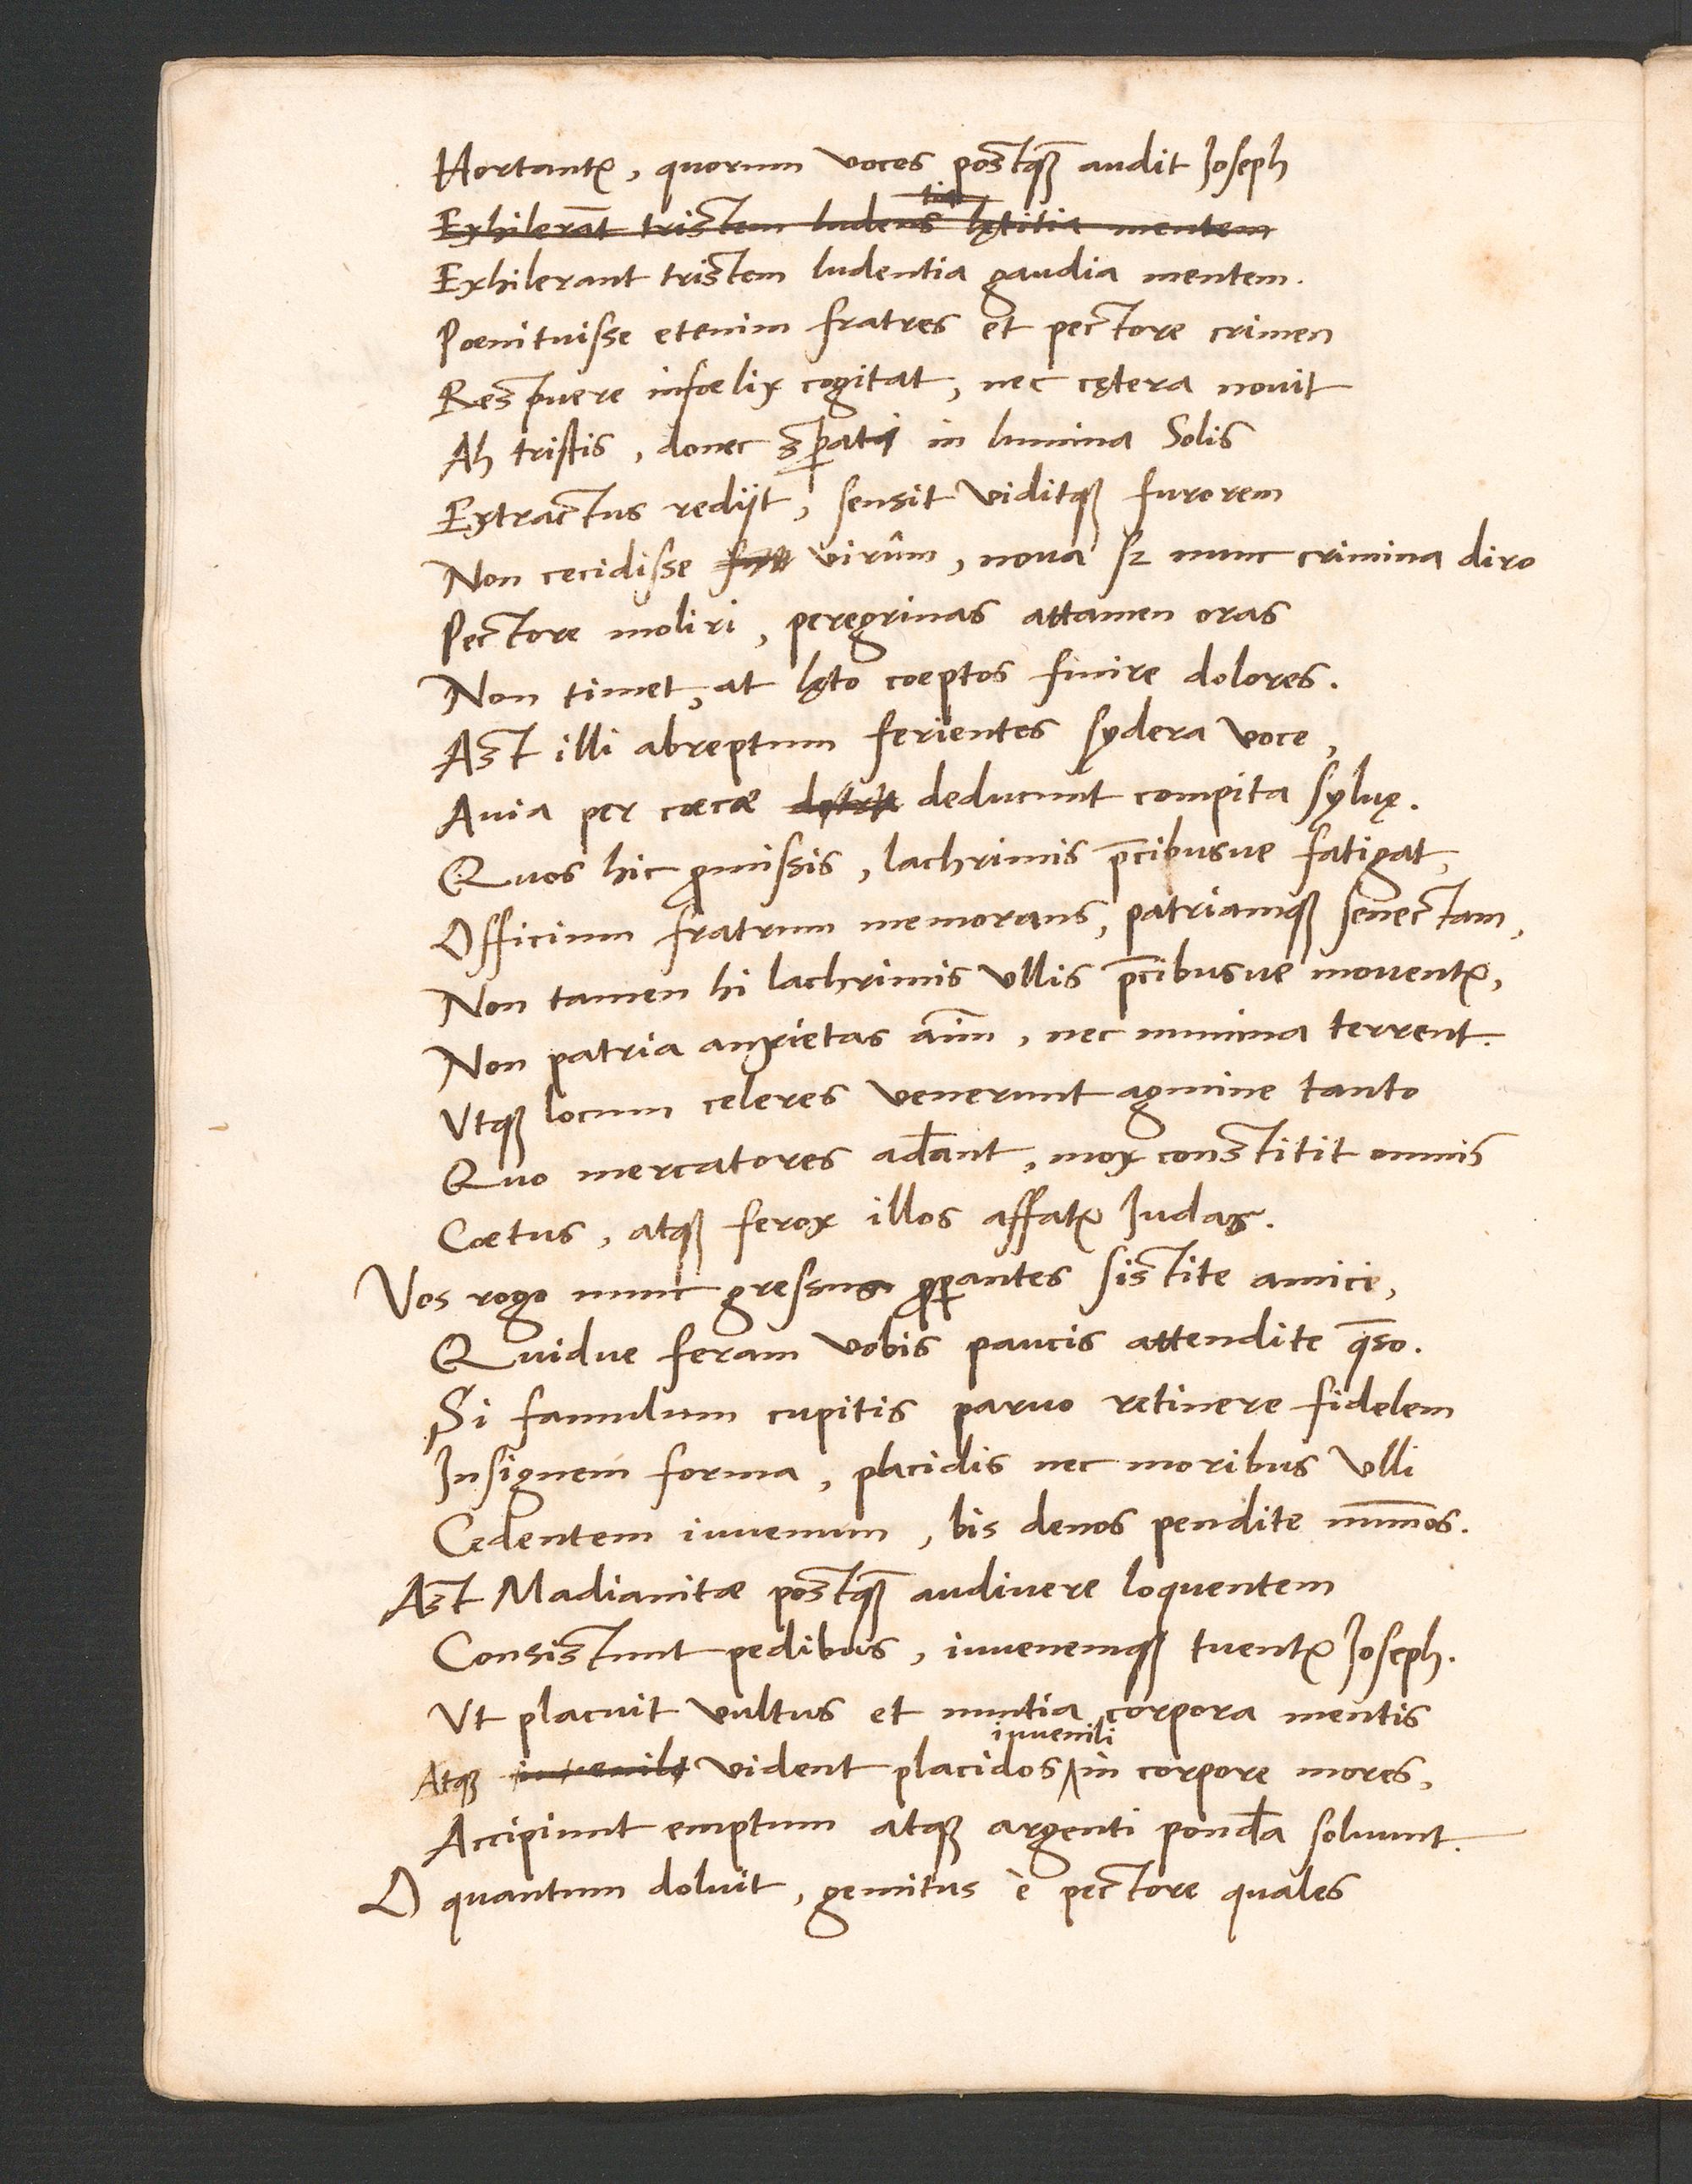 Hortant᷑, quorum voces postqꝫ̃ audit Ioseph
Exhilerãt tristem ludens tia lętitia mentem
Exhilerant tristem ludentia gaudia mentem.
Poenituisse etenim fratres et pectore crimen
Respuere infoelix cogitat, nec cętera nouit
Ah tristis, donec in lumina Solis
Extractus redijt, sensit viditqꝫ furorem
Non cecidisse virûm, noua sꝫ nunc crimina diro
Pectore moliri, peregrinas attamen oras
Non timet, at lęto coeptos finire dolores.
Ast illi abreptum ferientes sydera voce,
Auia per cœcæ deducunt compita syluę.
Quos hic ꝓmissis, lachrimis p̄cibusue fatigat,
Officium fratrum memorans, patriamqꝫ senectam,
Non tamen hi lachrimis vllis p̄cibusue mouent᷑,
Non patria anxietas aĩm, nec numina terrent.
Vtqꝫ locum celeres venerunt agmine tanto
Quo mercatores adant, mox constitit omnis
Coetus, atqꝫ ferox illos affat᷑ Iudas.
Vos rogo nunc gressum ꝓꝑantes sistite amici,
Quidue feram vobis paucis attendite q̄so.
Si famulum cupitis paruo retinere fidelem
Insignem forma, placidis nec moribus vlli
Cedentem iuuenum, bis denos pendite num̃os.
Ast Madianitæ postqꝫ̃ audiuere loquentem
Consistunt pedibus, iuuenemqꝫ tuent᷑ Ioseph.
Vt placuit vultus et nuntia corpora mentis
Atqꝫ iuuenili vident placidos iuuenili in corpore mores,
Accipiunt emptum atqꝫ argenti ponda soluunt.
O quantum doluit, gemitus è pectore quales